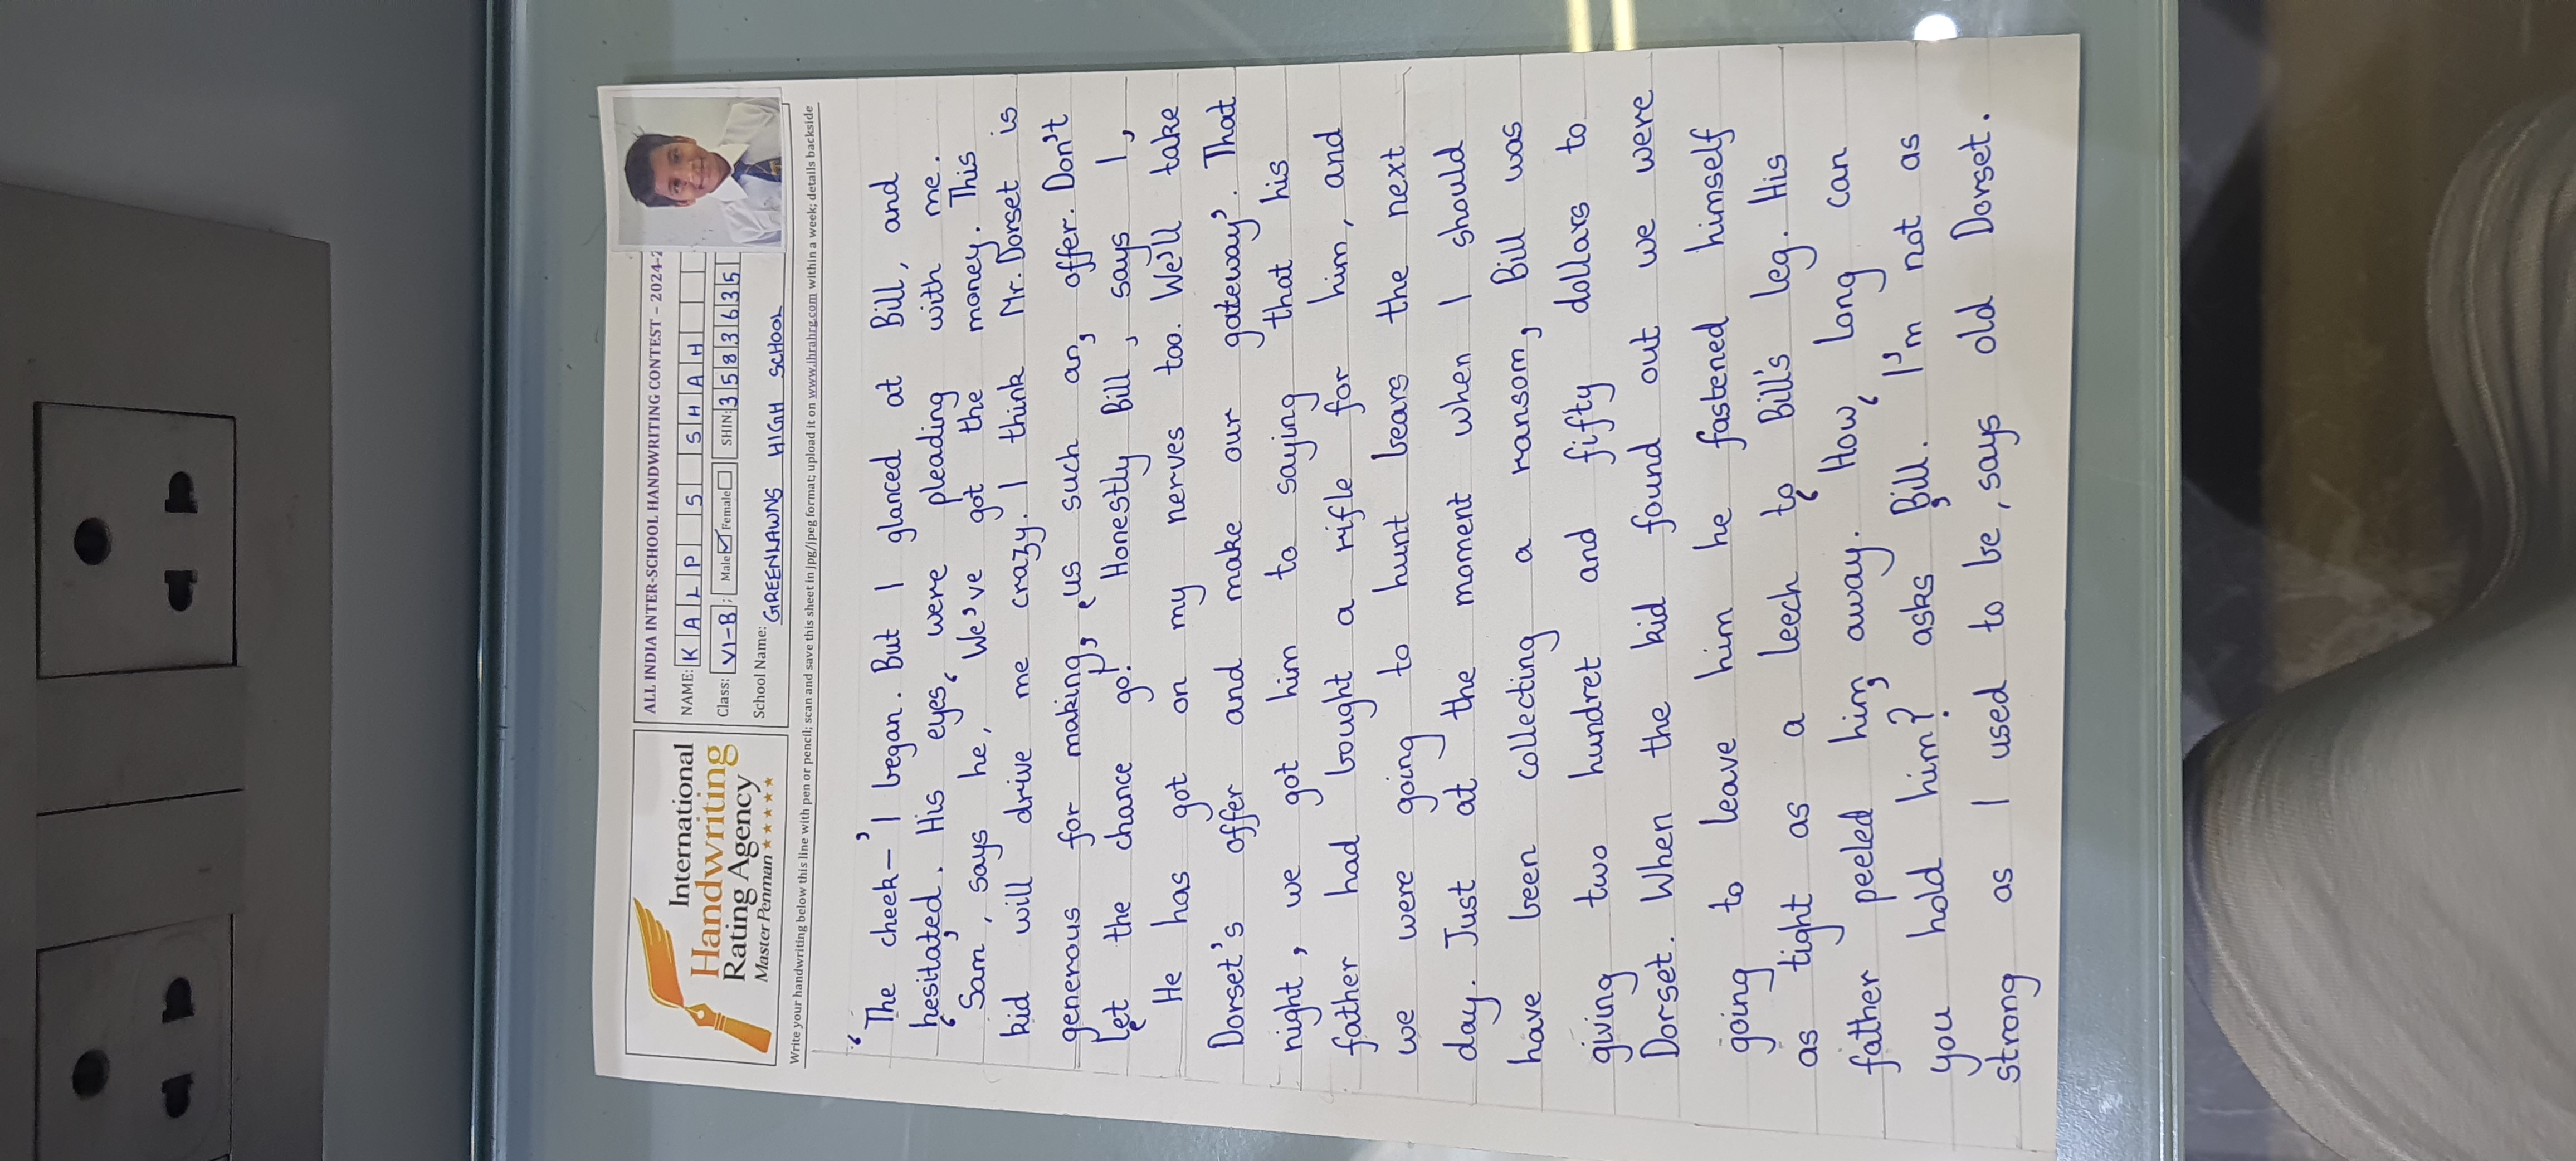 International
Handwriting
Rating Agency
Master Penman ★★★★★★
ALL INDIA INTER-SCHOOL HANDWRITING CONTEST – 2024-2
NAME: KALP S SHAH
Class: VI-B ; Male ☑ Female ☐ SHIN: 3583635
School Name: GREENLAWNS HIGH SCHOOL
Write your handwriting below this line with pen or pencil; scan and save this sheet in jpg/jpeg format; upload it on www.ihrahrg.com within a week; details backside
'The cheek–' I began. But I glanced at Bill, and
hesitated. His eyes were pleading with me.
'Sam', says he, 'We've got the money. This
kid will drive me crazy. I think Mr. Dorset is
generous for making us such an offer. Don't
let the chance go!' 'Honestly Bill', says I,
'He has got on my nerves too. We'll take
Dorset's offer and make our gateway'. That
night, we got him to saying that his
father had bought a rifle for him, and
we were going to hunt bears the next
day. Just at the moment when I should
have been collecting a ransom, Bill was
giving two hundret and fifty dollars to
Dorset. When the kid found out we were
going to leave him he fastened himself
as tight as a leech to Bill's leg. His
father peeled him away. 'How long can
you hold him?' asks Bill. 'I'm not as
strong as I used to be, says old Dorset.